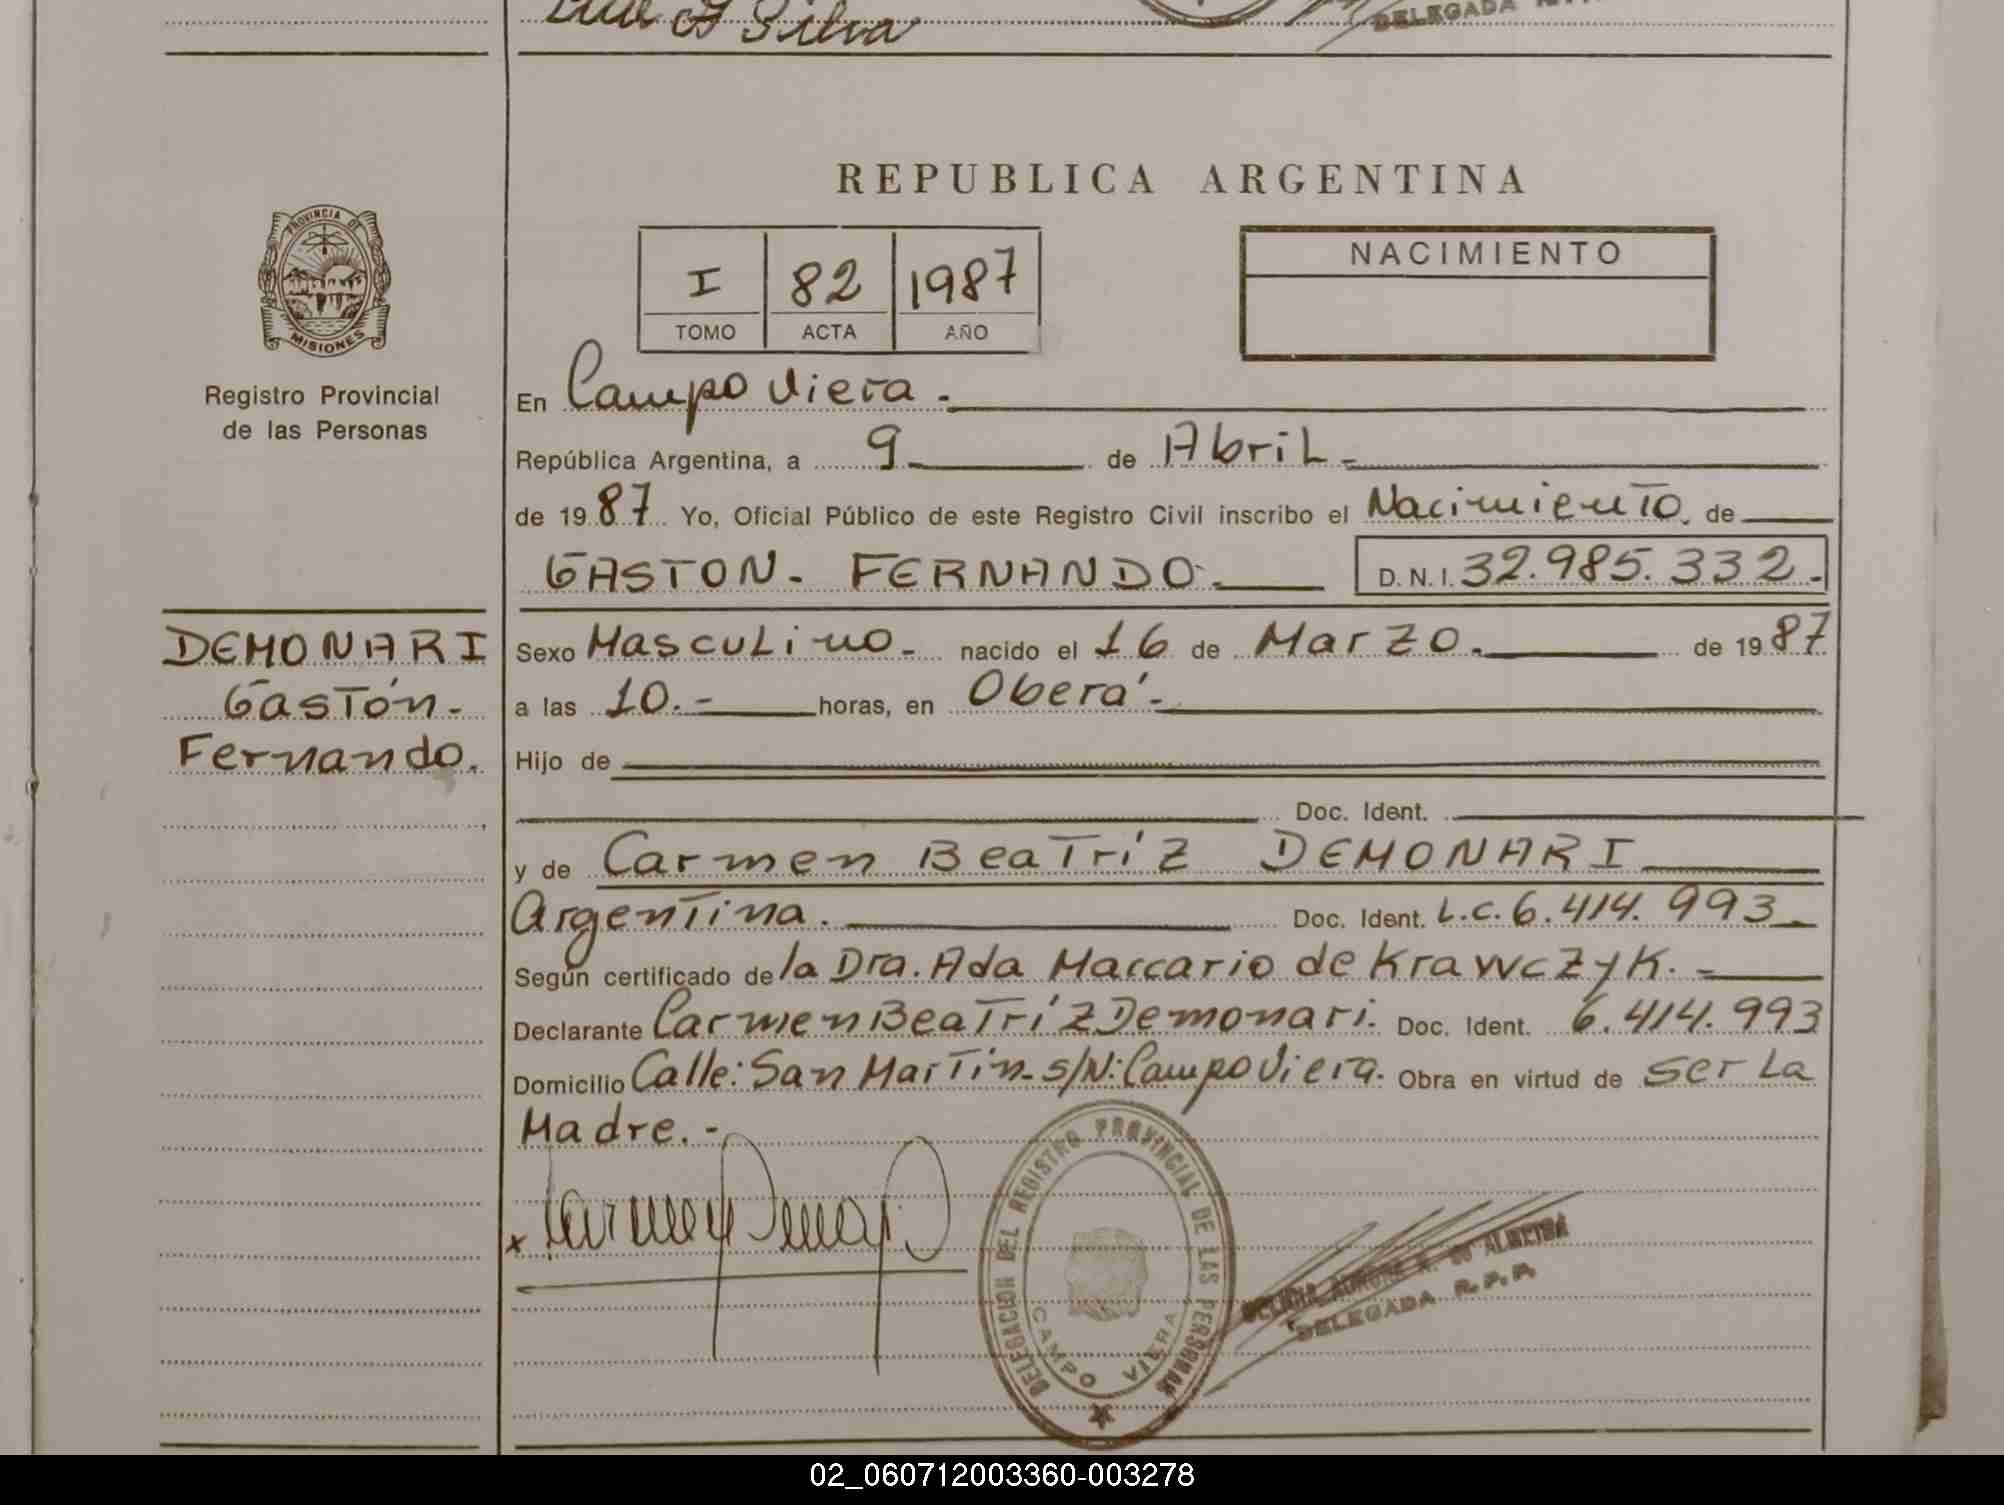 Silva
DELEGADA
REPUBLICA ARGENTINA
PROVINCIA DE
MISIONES
Registro Provincial
de las Personas
I 82 1987
TOMO ACTA AÑO
NACIMIENTO
En Campo Viera.
República Argentina, a 9 de Abril
de 1987 Yo, Oficial Público de este Registro Civil inscribo el Nacimiento, de
GASTON. FERNANDO. D.N.I. 32.985.332.
DEMONARI
Gastón
Fernando.
Sexo Masculino nacido el 16 de Marzo. de 1987
a las 10.- horas, en Oberá
Hijo de
Doc. Ident.
y de Carmen Beatríz DEMONARI
Argentina. Doc. Ident. L.C. 6.414.993
Según certificado de la Dra. Ada Maccario de Krawczyk.
Declarante Carmen Beatríz Demonari. Doc. Ident. 6.414.993
Domicilio Calle: San Martín s/N: Campo Viera. Obra en virtud de ser La
Madre.-
x
DELEGACION DEL REGISTRO PROVINCIAL DE LAS PERSONAS
CAMPO VIERA
ALMEIDA
DELEGADA R.P.P.
02_060712003360-003278